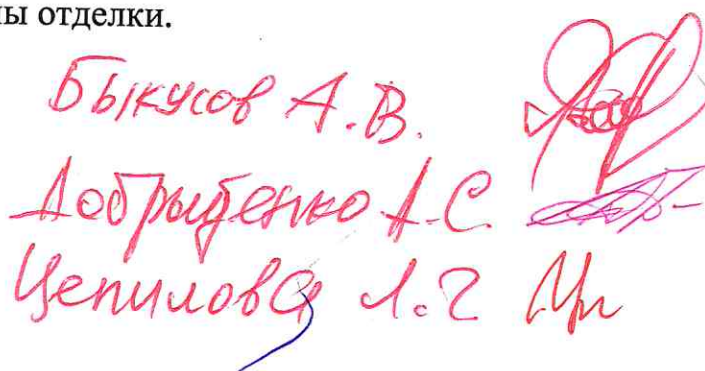 ны отделки.
Быкусов А.В.
Добрыденко А.С.
Цепилова Л.Г